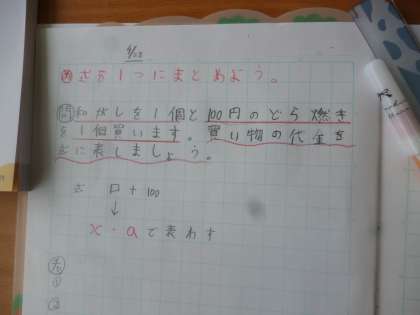 ㋱ 式を1つにまとめよう。
問 和がしを1個と100円のどら焼き
を1個買います。買い物の代金を
式に表しましょう。
式 □+100
↓
x・aで表わす
①
②